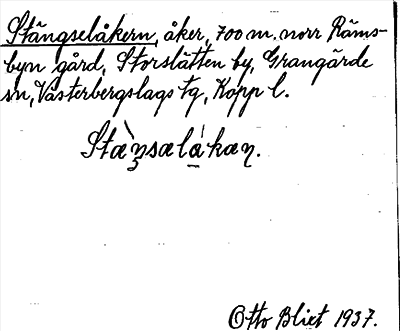 Stängselåkern, åker, 700 m. norr Räms-
byn gård, Storslätten by, Grangärde
sn, Västerbergslags tg, Kopp l.
Stàŋsælákæn.
Otto Blixt 1937.